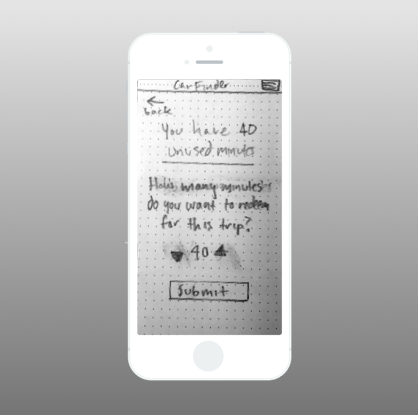 CarFinder
back
You have 40
unused minutes
How many minutes
do you want to redeem
for this trip?
40
Submit